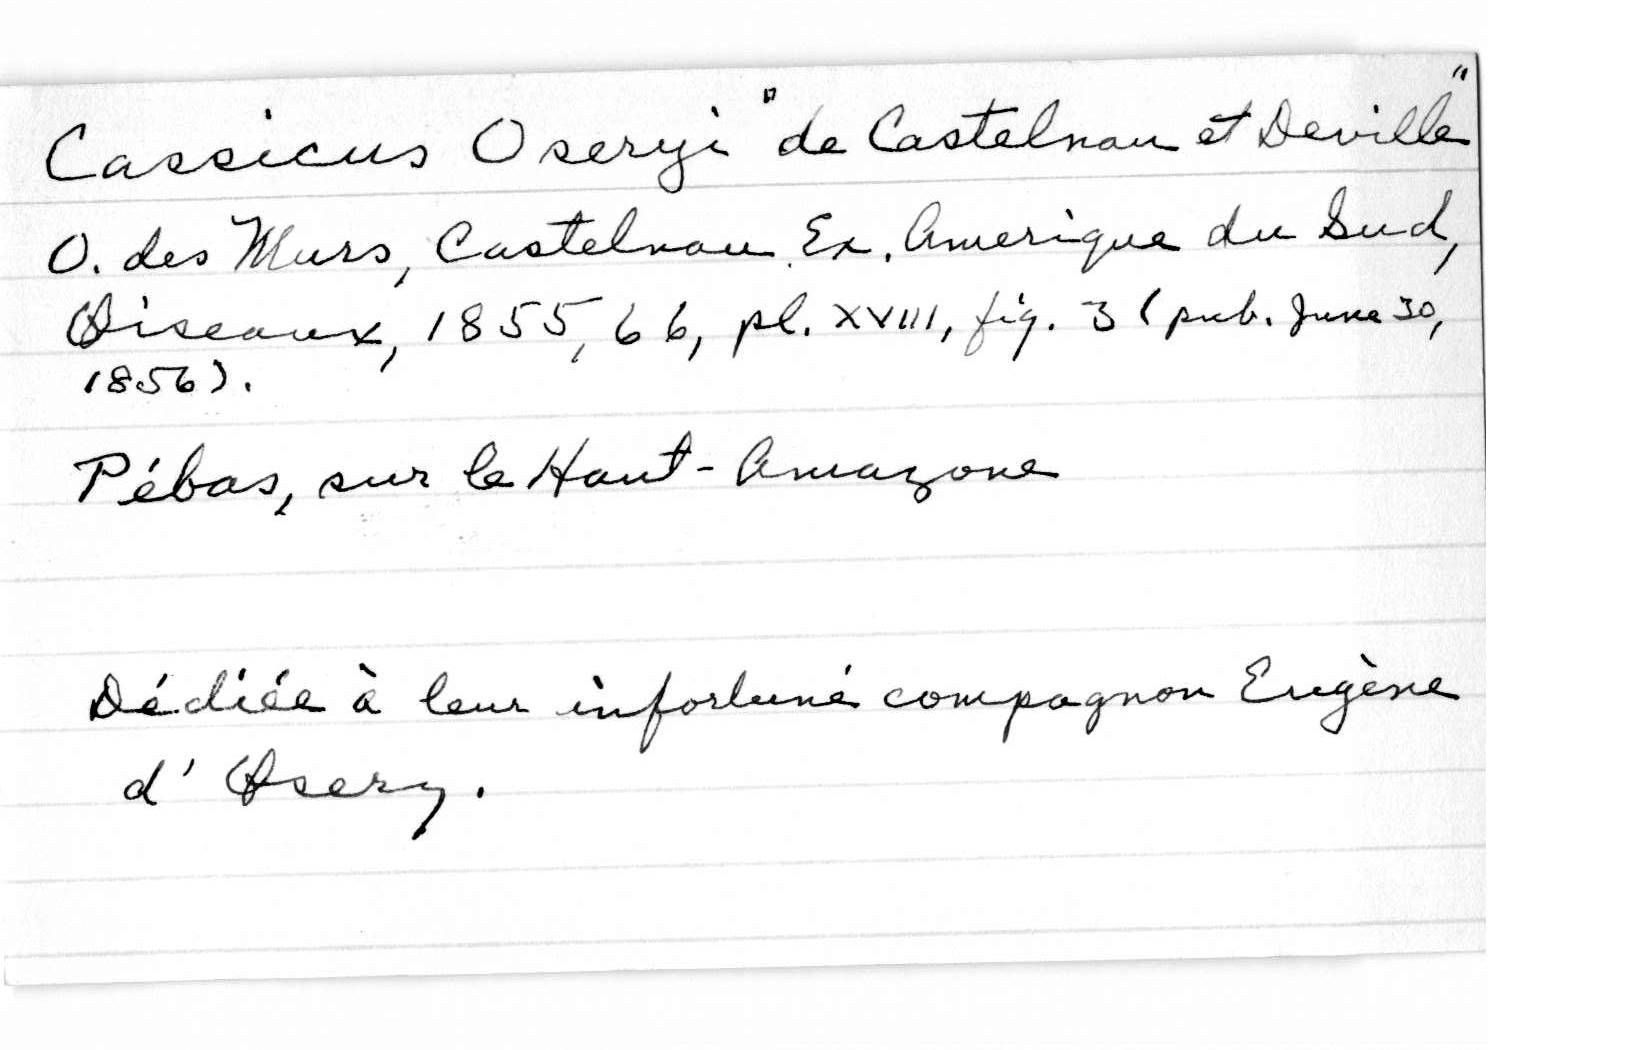 Cassicus Oseryi "de Castelnau et Deville"
O. des Murs, Castelnau Ex. Amerique du Sud,
Oiseaux, 1855, 66, pl. XVIII, fig. 3 (pub. June 30,
1856).
Pébas, sur le Haut-Amazone
Dédiée à leur infortuné compagnon Eugène
d'Osery.